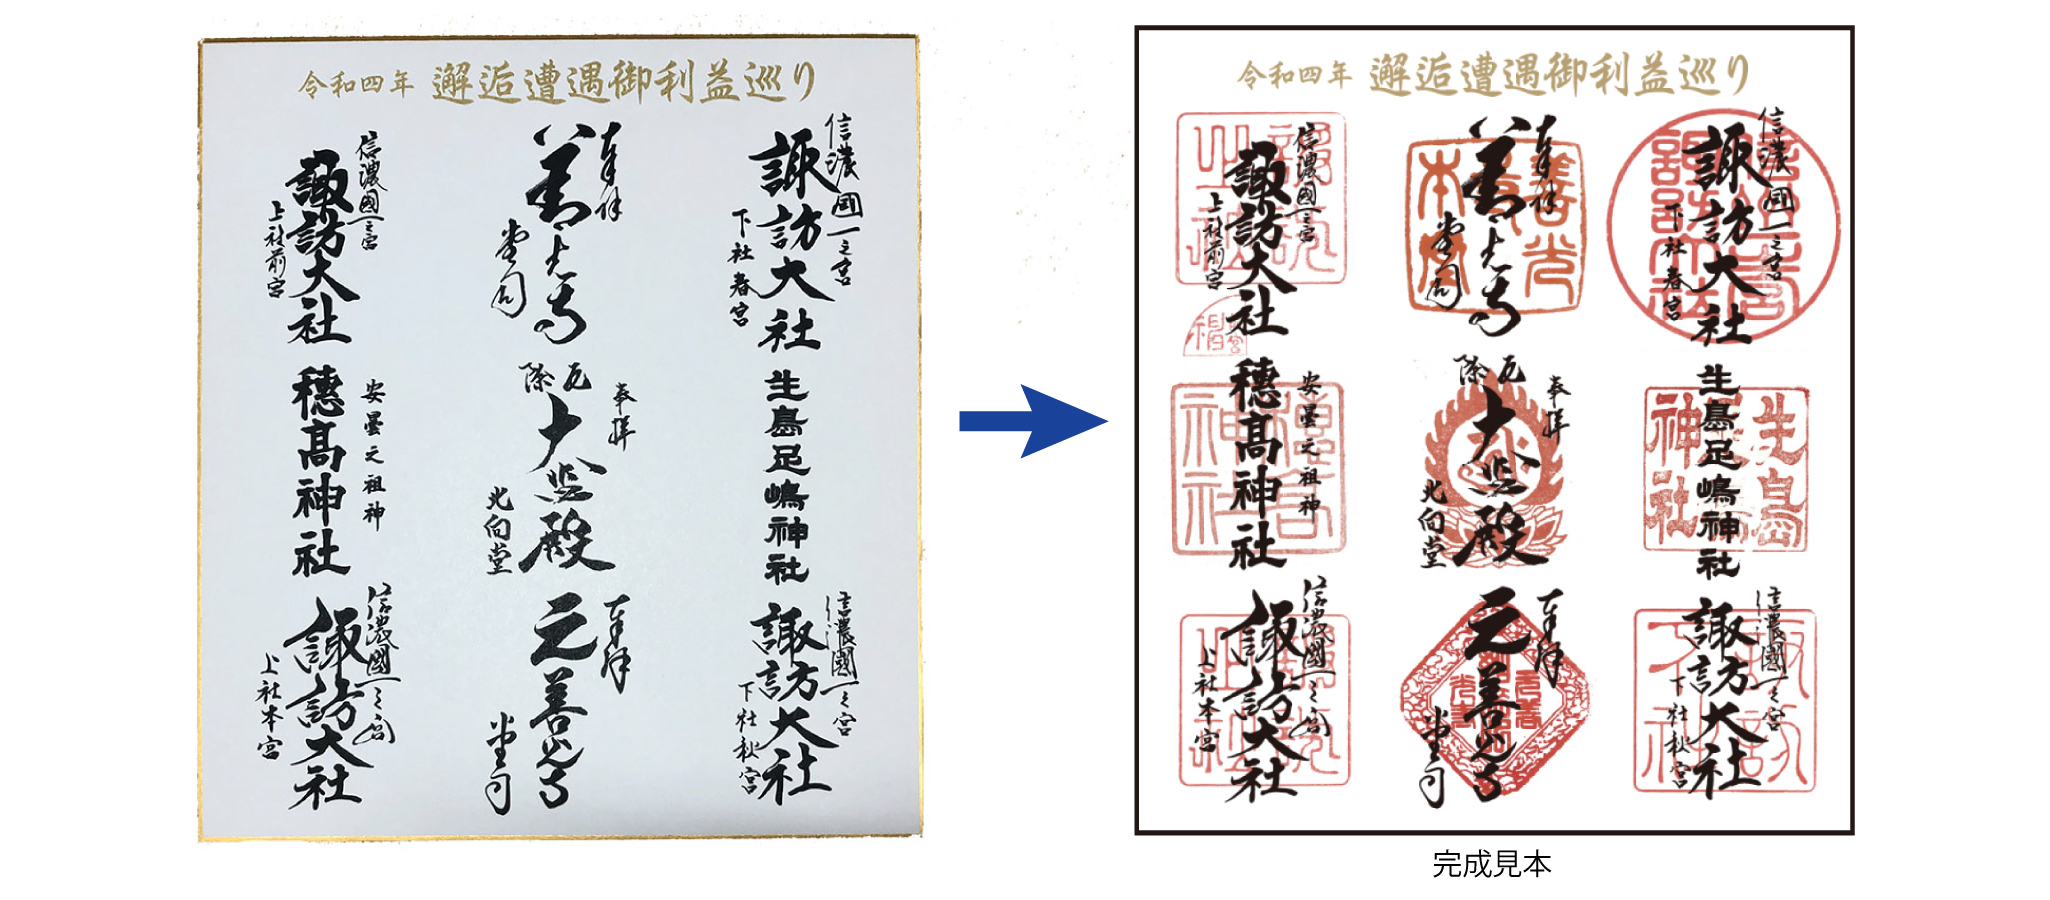 令和四年 邂逅遭遇御利益巡り
信濃國一之宮
諏訪大社
下社春宮
奉拝
善光寺
堂司
信濃國一之宮
諏訪大社
上社前宮
生島足嶋神社
奉拝
厄除
大悲殿
北向堂
安曇之祖神
穗髙神社
信濃國一之宮
諏訪大社
下社秋宮
奉拝
元善光寺
堂司
信濃國一之宮
諏訪大社
上社本宮
令和四年 邂逅遭遇御利益巡り
信濃國一之宮
諏訪大社
下社春宮
奉拝
善光寺
堂司
信濃國一之宮
諏訪大社
上社前宮
生島足嶋神社
奉拝
厄除
大悲殿
北向堂
安曇之祖神
穗髙神社
信濃國一之宮
諏訪大社
下社秋宮
奉拝
元善光寺
堂司
信濃國一之宮
諏訪大社
上社本宮
生島
神社
完成見本